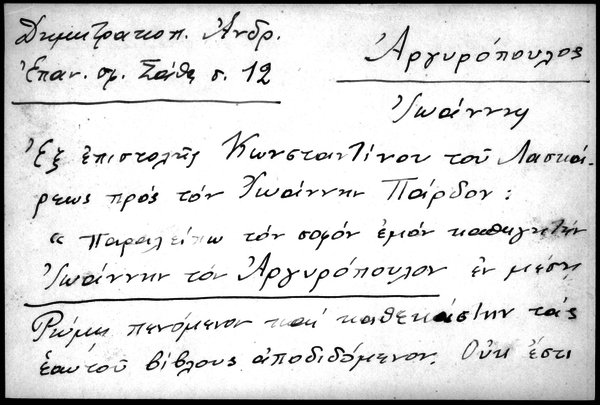 Δημητρακοπ. Ἀνδρ.
Ἐπαν. σφ. Σάθα σ. 12
Ἀργυρόπουλος
Ἰωάννης
Ἐξ ἐπιστολῆς Κωνσταντίνου τοῦ Λασκά-
ρεως πρός τόν Ἰωάννην Πάρδον:
“ Παραλείπω τόν σοφόν ἐμόν καθηγητήν
Ἰωάννην τόν Ἀργυρόπουλον ἐν μέσῃ
Ρώμῃ πενόμενον καί καθεκάστην τάς
ἑαυτοῦ βίβλους ἀποδιδόμενον. Οὐκ ἔστι